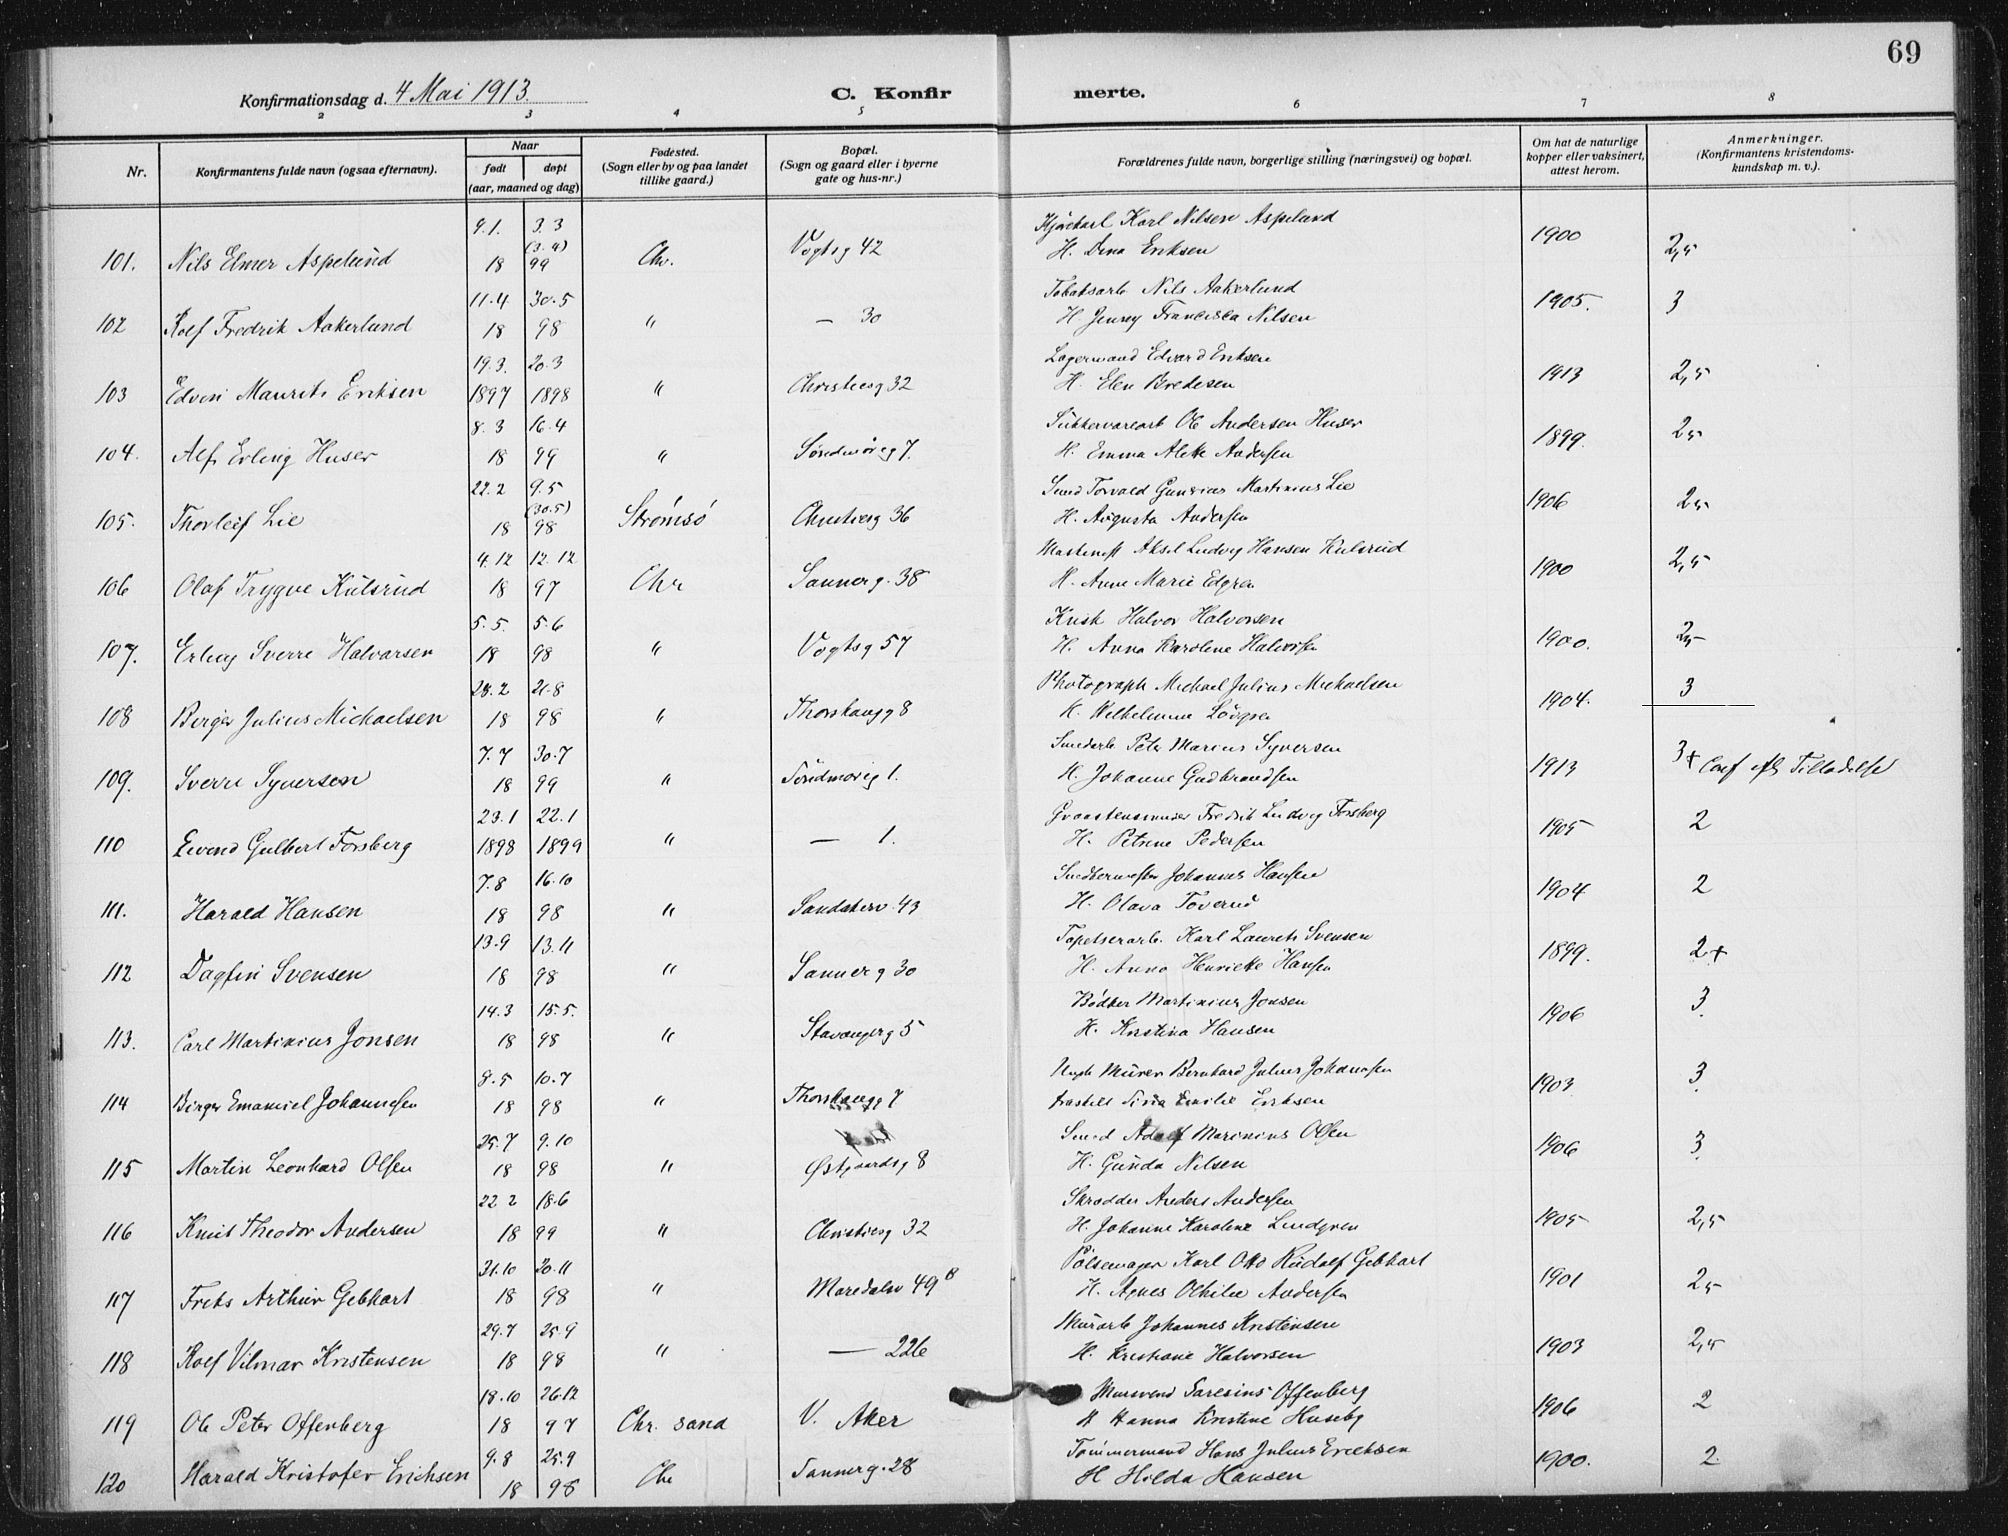 69
Konfirmationsdag d. 4 Mai 1913.
C. Konfirmerte.
2 3 4 5 6 7 8
Nr.
Konfirmantens fulde navn (ogsaa efternavn).
Naar
født døpt
(aar, maaned og dag)
Fødested.
(Sogn eller by og paa landet
tillike gaard.)
Bopæl.
(Sogn og gaard eller i byerne
gate og hus-nr.)
Forældrenes fulde navn, borgerlige stilling (næringsvei) og bopæl.
Om hat de naturlige
kopper eller vaksinert,
attest herom.
Anmerkninger.
(Konfirmantens kristendoms-
kundskap m. v.).
9.1. 3.3 Karl Nilsen Aspelund
101. Nils Elmer Aspelund 18 (3.4) 99 Chr. Vogtsg 42 H. Dina Eriksen 1900 2,5
11.4 30.5 Tobaksarb Nils Aakerlund
102 Rolf Fredrik Aakerlund 18 98 " — 30 H. Jenny Francisca Nilsen 1905. 3
19.3. 20.3 Lagermand Edvard Eriksen
103 Edvin Maurits Eriksen 1897 1898 " Christiesg 32 H. Elen Bredesen 1913 2,5
8.3 16.4 Sukkervarearb Ole Andersen Huser
104. Alf Erling Huser 18 99 " Søndmørsg 7. H. Emma Alette Andersen 1899. 25
22.2 9.5 Smed Torvald Martinius Lie
105. Thorleif Lie 18 (30.5) 98 Strømsø Christiesg 36 H. Augusta Andersen 1906 25
4.12 12.12 Aksel Ludvig Hansen Kulsrud
106 Olaf Trygve Kulsrud 18 97 Chr Sannerg. 38 H. Anne Marie Edgren 1900 2,5
5.5. 5.6 Halvor Halvorsen
107. Erling Sverre Halvorsen 18 98 " Vogtsg 57 H. Anna Karoline Halvorsen 1900. 25
28.2 21.8 Photograph Michael Julius Michaelsen
108 Birger Julius Michaelsen 18 98 " Thorshaugg 8 H. Wilhelmine Løvgren 1904. 3
7.7 30.7 Smedarb Peter Marius Syversen
109. Sverre Syversen 18 99 " Søndmørsg 1. H. Johanne Gudbrandsen 1913 3+ Conf eft Tilladelse
23.1 22.1 Graastensminer Fredrik Ludvig Forsberg
110 Eivend Gulbert Forsberg 1898 1899 " — 1. H. Petrine Pedersen 1905 2
7.8 16.10 Snedkermester Johannes Hansen
111. Harald Hansen 18 98 " Sandakerv. 43 H. Olava Toverud 1904 2
13.9 13.11 Tapetserarb. Karl Laurits Svensen
112 Dagfin Svensen 18 98 " Sannerg 30 H. Anna Henriette Hansen 1899. 2+
14.3 15.5. Bødker Martinius Jonsen
113. Carl Martinius Jonsen 18 98 " Stavangerg 5 H. Kristina Hansen 1906 3
8.5 10.7 Murer Bernhard Julius Johannesen
114 Birger Emanuel Johannesen 18 98 " Thorshaugg 7 fraskilt Emilie Eriksen 1903 3
25.7 9.10 Smed Adolf Marinius Olsen
115 Martin Leonhard Olsen 18 98 " Østgaardsg 8 H. Gunda Nilsen 1906 3
22 2 18.6 Skrædder Anders Andersen
116 Knut Theodor Andersen 18 99 " Christiesg 32 H. Johanne Karoline Lundgren 1905 2,5
31.10 20.11 Pølsemager Karl Otto Rudolf Gebhart
117 Frits Arthur Gebhart 18 98 " Maridalsv 49 B H. Agnes Othilie Andersen 1901 25
29.7 25.9 Murarb Johannes Kristensen
118 Rolf Vilmar Kristensen 18 98 " — 226 H. Kristiane Halvorsen 1903 2,5
18.10 26.12 Offenberg
119 Ole Peter Offenberg 18 97 Chr. sand V. Aker H Hanna Kristine Huseby 1906 2
9.8 25.9 Tømmermand Hans Julius Erichsen
120 Harald Kristofer Erichsen 18 98 Chr Sannerg. 28 H Hilda Hansen 1900. 2.